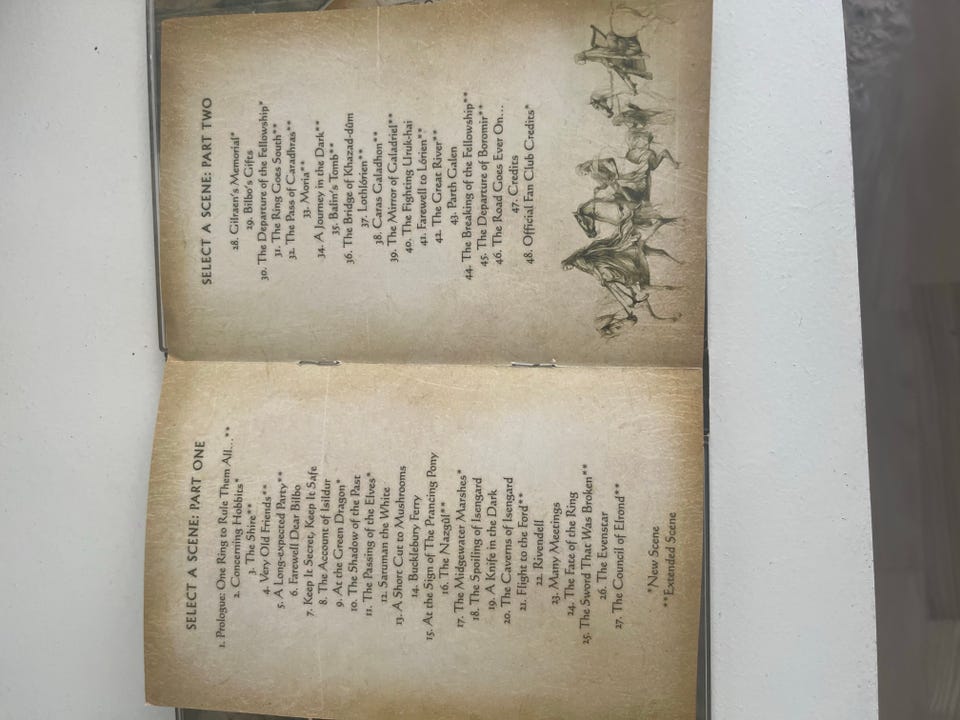 SELECT A SCENE: PART ONE
1. Prologue: One Ring to Rule Them All...**
2. Concerning Hobbits*
3. The Shire**
4. Very Old Friends**
5. A Long-expected Party**
6. Farewell Dear Bilbo
7. Keep It Secret, Keep It Safe
8. The Account of Isildur
9. At the Green Dragon*
10. The Shadow of the Past
11. The Passing of the Elves*
12. Saruman the White
13. A Short Cut to Mushrooms
14. Bucklebury Ferry
15. At the Sign of The Prancing Pony
16. The Nazgûl**
17. The Midgewater Marshes*
18. The Spoiling of Isengard
19. A Knife in the Dark
20. The Caverns of Isengard
21. Flight to the Ford**
22. Rivendell
23. Many Meetings
24. The Fate of the Ring
25. The Sword That Was Broken**
26. The Evenstar
27. The Council of Elrond**
*New Scene
**Extended Scene
SELECT A SCENE: PART TWO
28. Gilraen's Memorial*
29. Bilbo's Gifts
30. The Departure of the Fellowship*
31. The Ring Goes South**
32. The Pass of Caradhras**
33. Moria**
34. A Journey in the Dark**
35. Balin's Tomb**
36. The Bridge of Khazad-dûm
37. Lothlórien**
38. Caras Galadhon**
39. The Mirror of Galadriel**
40. The Fighting Uruk-hai
41. Farewell to Lórien**
42. The Great River**
43. Parth Galen
44. The Breaking of the Fellowship**
45. The Departure of Boromir**
46. The Road Goes Ever On...
47. Credits
48. Official Fan Club Credits*